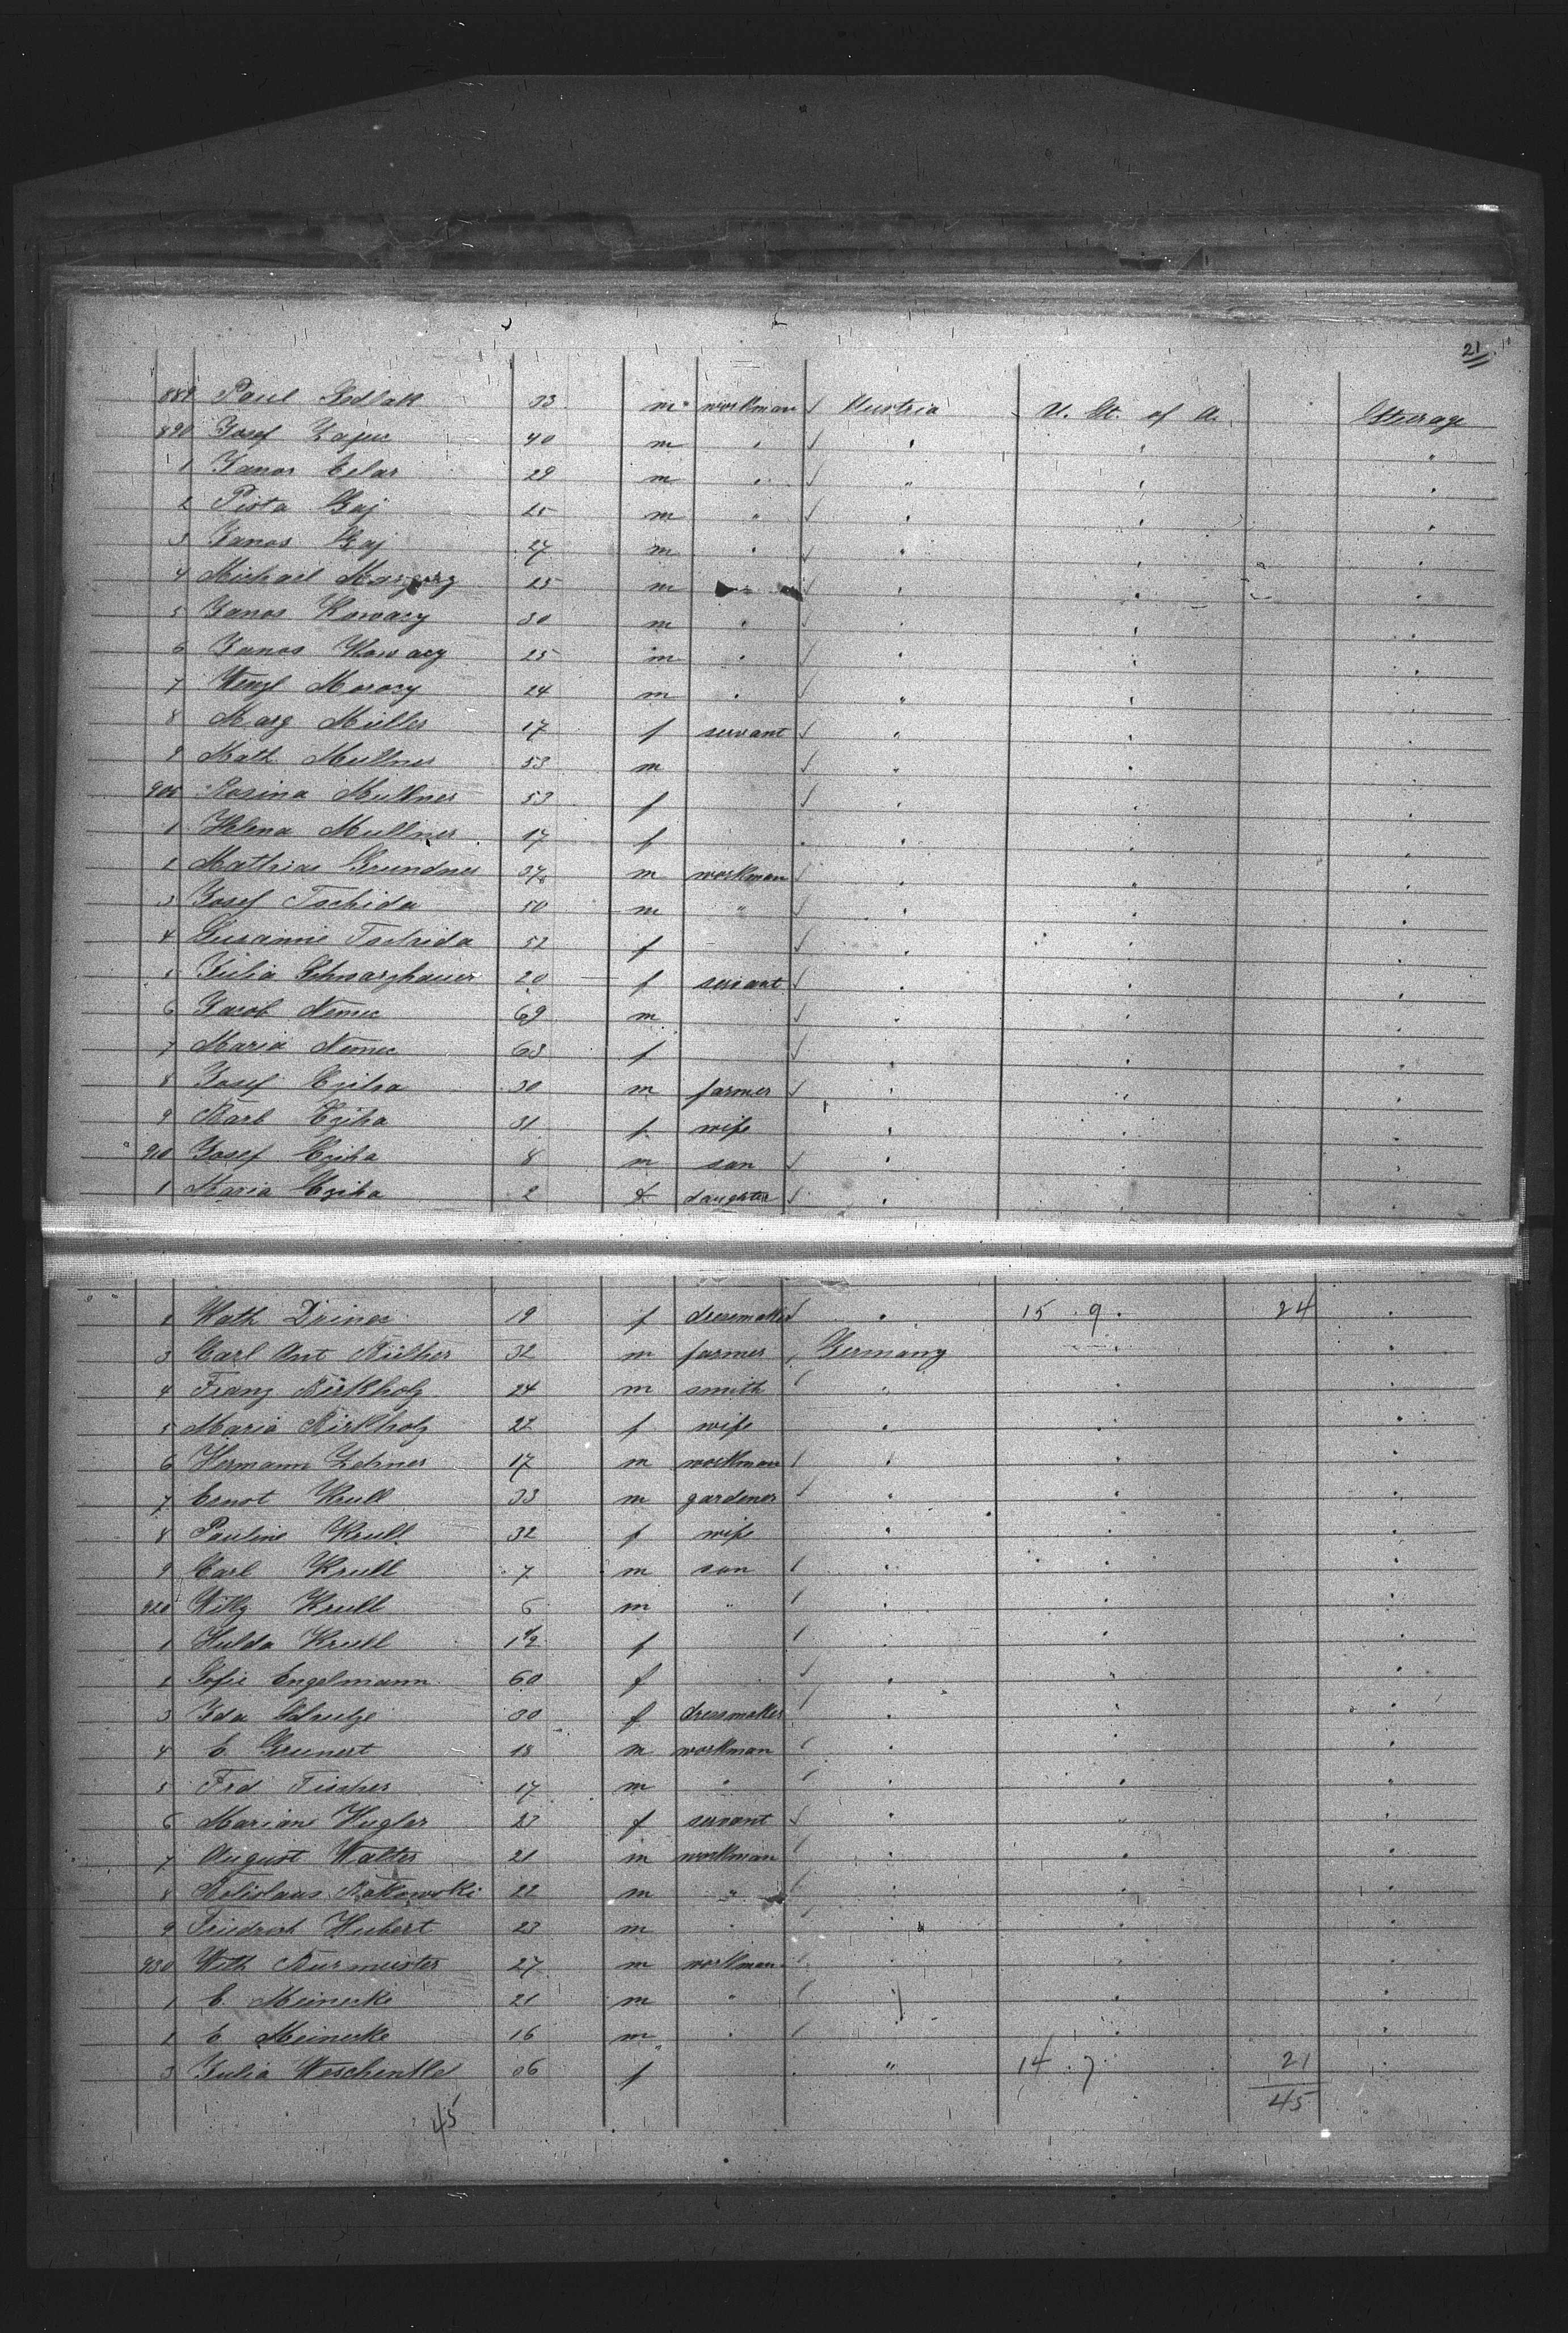 21.
889 Paul Sedlak 33 m workman Austria U. St. of A. Steerage
890 Josef Zajac 40 m " " " "
1 Janos Celar 29 m " " " "
2 Pista Gaj 25 m " " " "
3 Janos Gaj 27 m " " " "
4 Michael 25 m " " " "
5 Janos Kowacy 30 m " " " "
6 Janos Kowacy 25 m " " " "
7 Wenzl Moracy 24 m " " " "
8 Marg Müller 17 f servant " " "
9 Math Mullner 53 m " " "
900 Rosina Mullner 53 f " " "
1 Helena Mullner 17 f " " "
2 Mathias Grundner 37 m workman " " "
3 Josef Tschida 50 m " " " "
4 Susanne Tschida 52 f " " "
5 Julia Schwarzhauer 20 f servant " " "
6 Jacob Nemec 69 m " " "
7 Maria Nemec 63 f " " "
8 Josef Cziha 30 m farmer " " "
9 Barb Cziha 31 f wife " " "
910 Josef Cziha 8 m son " " "
1 Maria Cziha 2 f daughter " " "
2 Kath 19 f dressmaker " 15 . 9 . 24 "
3 Carl Ant 32 m farmer Germany " "
4 Franz Birkholz 24 m smith " " "
5 Maria Birkholz 22 f wife " " "
6 Hermann Zehner 17 m workman " " "
7 Ernst Krull 33 m gardener " " "
8 Pauline Krull 32 f wife " " "
9 Carl Krull 7 m son " " "
920 Willy Krull 6 m " " " "
1 Hulda Krull 1 1/2 f " " "
2 Sofie Engelmann 60 f " " "
3 Ida Schulze 30 f dressmaker " " "
4 E. Grunert 18 m workman " " "
5 Frd Fischer 17 m " " " "
6 Mariane Kugler 23 f servant " " "
7 August Walter 21 m workman " " "
8 Bolislaus Rakowski 22 m " " " "
9 Friedrich Hubert 23 m " " " "
930 Wilh Burmeister 27 m workman " " "
1 C. Meinecke 21 m " " " "
2 C. Meinecke 16 m " " " "
3 Julia 36 f " 14 . 7 21 "
45 45